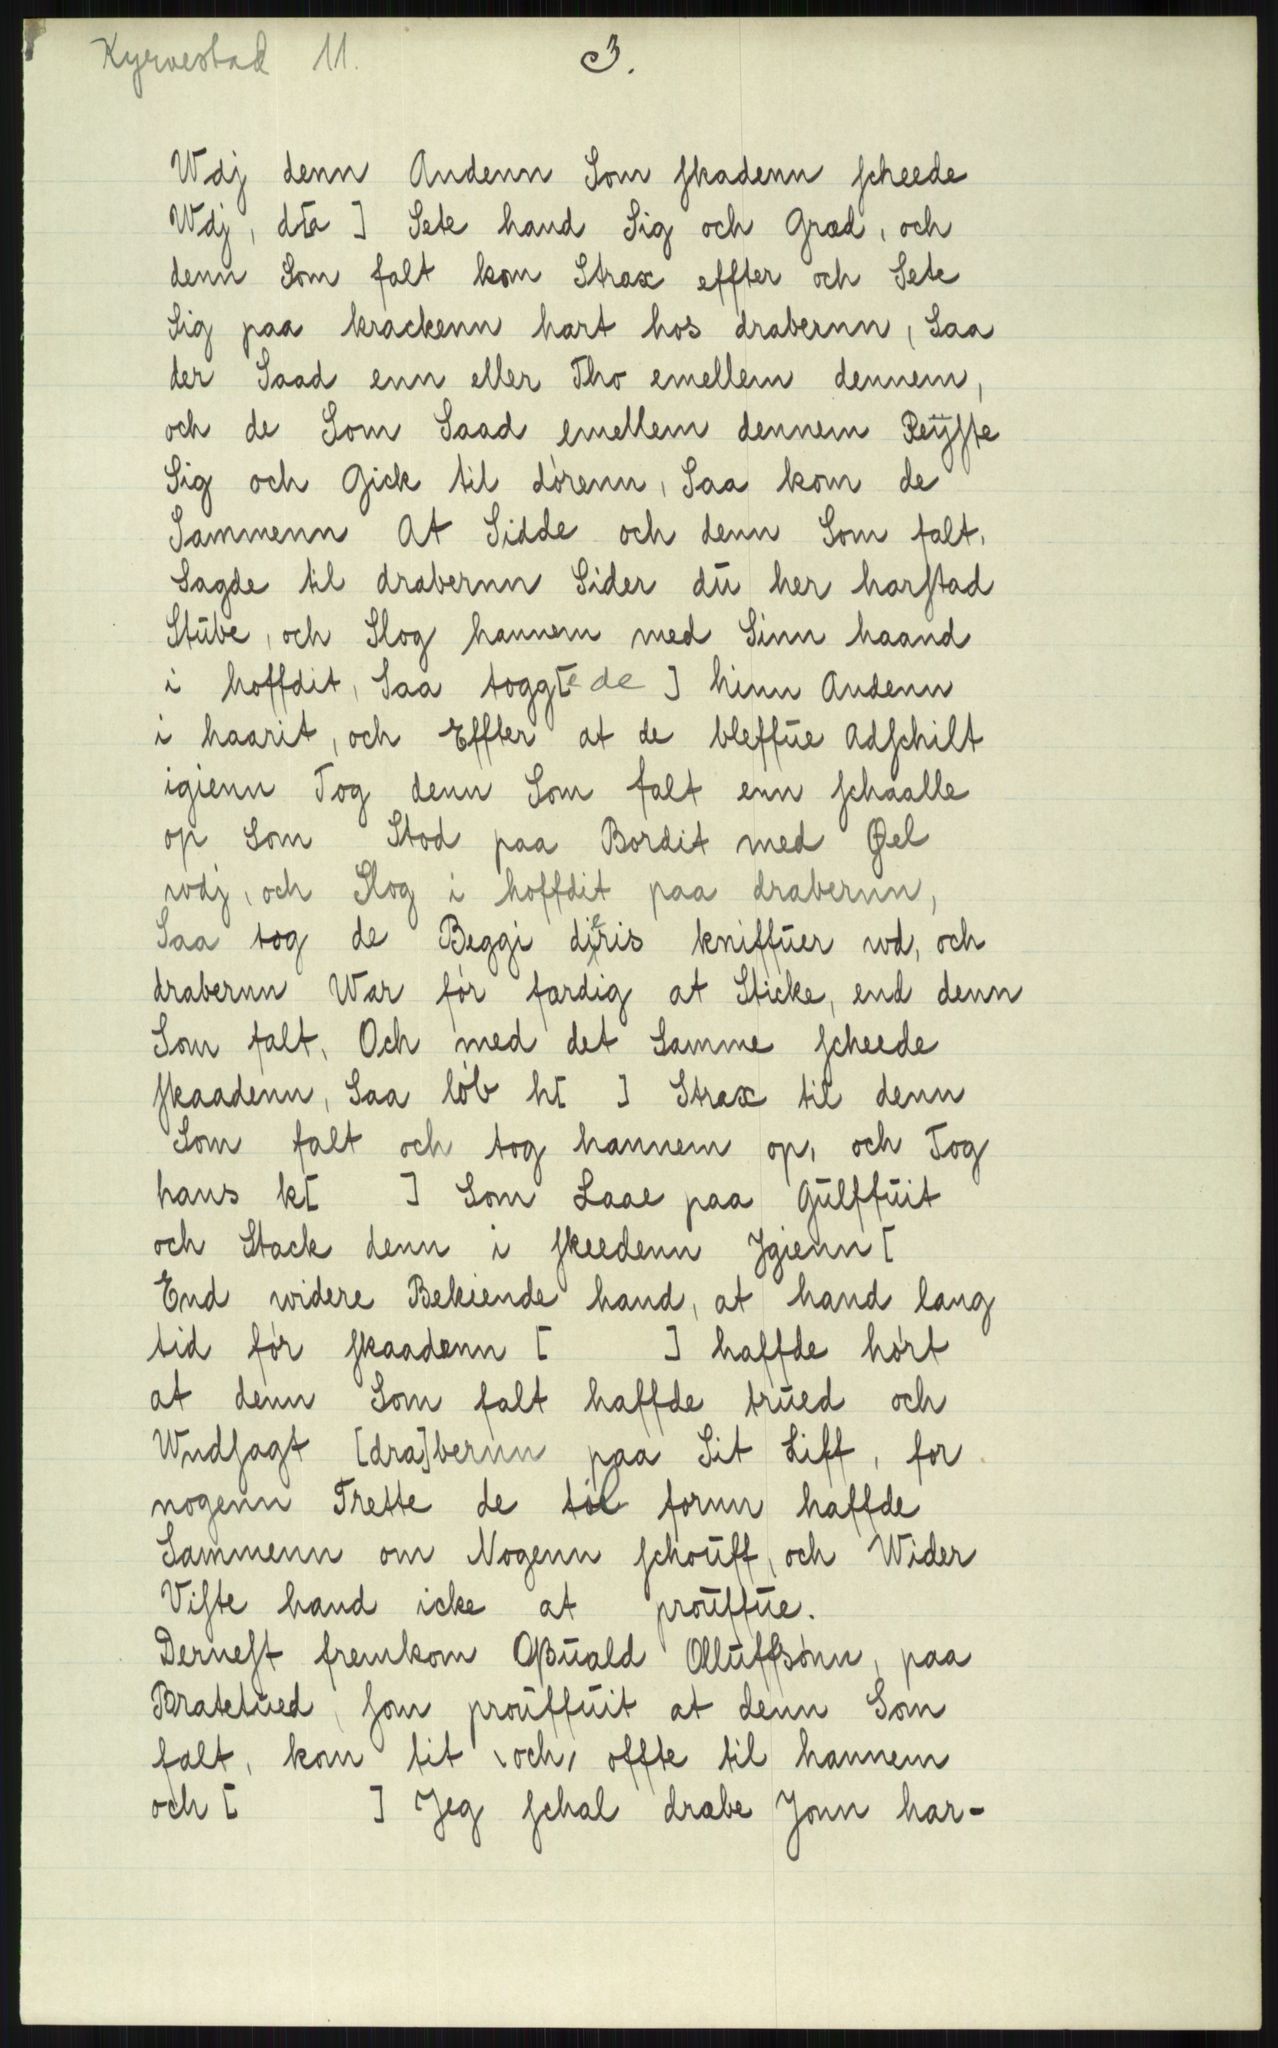 Kyrvestad 11. 3.
Wdj denn Andenn Som skadenn scheede
Wdj, d[a ] Sete hand Sig och Græd, och
denn Som falt kom Strax effter och Sete
Sig paa krackenn hart hos drabernn, Saa
der Saad enn eller Tho emellem dennem,
och de Som Saad emellem dennem Reÿste
Sig och Gick til dörenn, Saa kom de
Sammenn At Sidde och denn Som falt,
Sagde til drabernn Sider dū her harstad
Stūbe, och Slog hannem med Sinn haand
i hoffdit, Saa togg[ede ] hinn Andenn
i haarit, och Effter at de bleffūe Adschilt
igienn Tog denn Som falt enn schaalle
op Som Stod paa Bordit med Øel
wdj, och Slog i hoffdit paa drabernn,
Saa tog de Beggi dieris kniffūer wd, och
drabernn War för færdig at Sticke, end denn
Som falt. Och med det Samme scheede
skaadenn, Saa löb h[ ] Strax til denn
Som falt och tog hannem op, och Tog
hans k[ ] Som Laae paa Gūlffūit
och Stack denn i skeedenn Jgienn [
End widere Bekiende hand, at hand lang
tid för skaadenn [ ] haffde hört
at denn Som falt haffde trūed och
Wndsagt [dra]bernn paa Sit Liff, for
nogenn Trette de til fornn haffde
Sammenn om Nogenn schoūff, och Wider
Viste hand icke at proūffūe.
Dernest fremkom Oßūald Ollūffsönn, paa
Bratetūed, som proūffūit at denn Som
falt, kom tit och offte til hannem
och [ ] Jeg schal dræbe Jonn har-